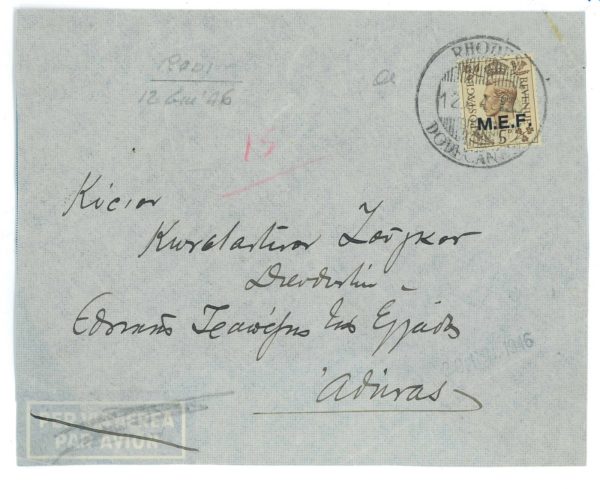 Rodi
12 Giu '46
RHODES
12
DODECANESE
POSTAGE REVENUE
M.E.F.
5D
15
Κύριον
Κωνσταντίνον Ζούγκον
Διευθυντήν
Εθνικής Τραπέζης της Ελλάδος
Αθήνας
1946
PER VIA AEREA
PAR AVION